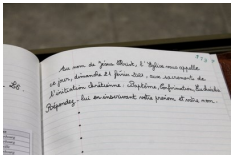 Au nom de Jésus Christ, l'Église vous appelle
ce jour, dimanche 21 février, aux sacrements de
l'initiation chrétienne : Baptême, Confirmation, Eucharistie
Répondez-lui en inscrivant votre prénom et votre nom.